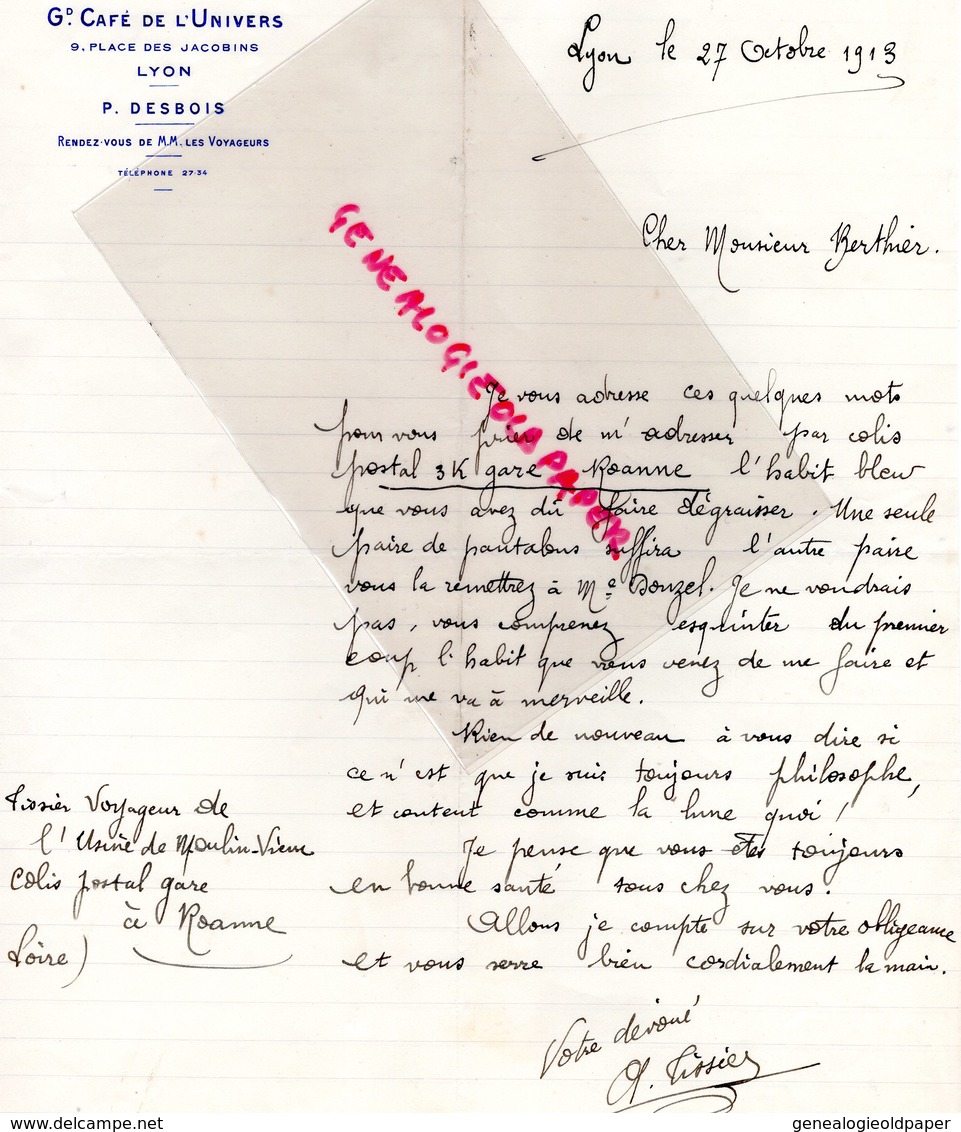 GD. CAFÉ DE L'UNIVERS
9, PLACE DES JACOBINS
LYON
P. DESBOIS
RENDEZ-VOUS DE M.M. LES VOYAGEURS
TÉLÉPHONE 27-34
Lyon le 27 Octobre 1913
Cher Monsieur Berthier.
GENEALOGIE OLD PAPER
Je vous adresse ces quelques mots
pour vous prier de m'adresser par colis
postal 3K gare Roanne l'habit bleu
que vous avez dû faire dégraisser. Une seule
paire de pantalons suffira l'autre paire
vous la remettrez à Me Donzel. Je ne voudrais
pas, vous comprenez esquinter du premier
coup l'habit que vous venez de me faire et
qui me va à merveille.
Rien de nouveau à vous dire si
ce n'est que je suis toujours philosophe,
et content comme la lune quoi!
Je pense que vous êtes toujours
en bonne santé tous chez vous.
Allons je compte sur votre obligeance
et vous serre bien cordialement la main.
Votre dévoué
A. Tissier
Tissier Voyageur de
l'Usine de Moulin-Vieux
Colis postal gare
à Roanne
Loire)
www.delcampe.net
genealogieoldpaper